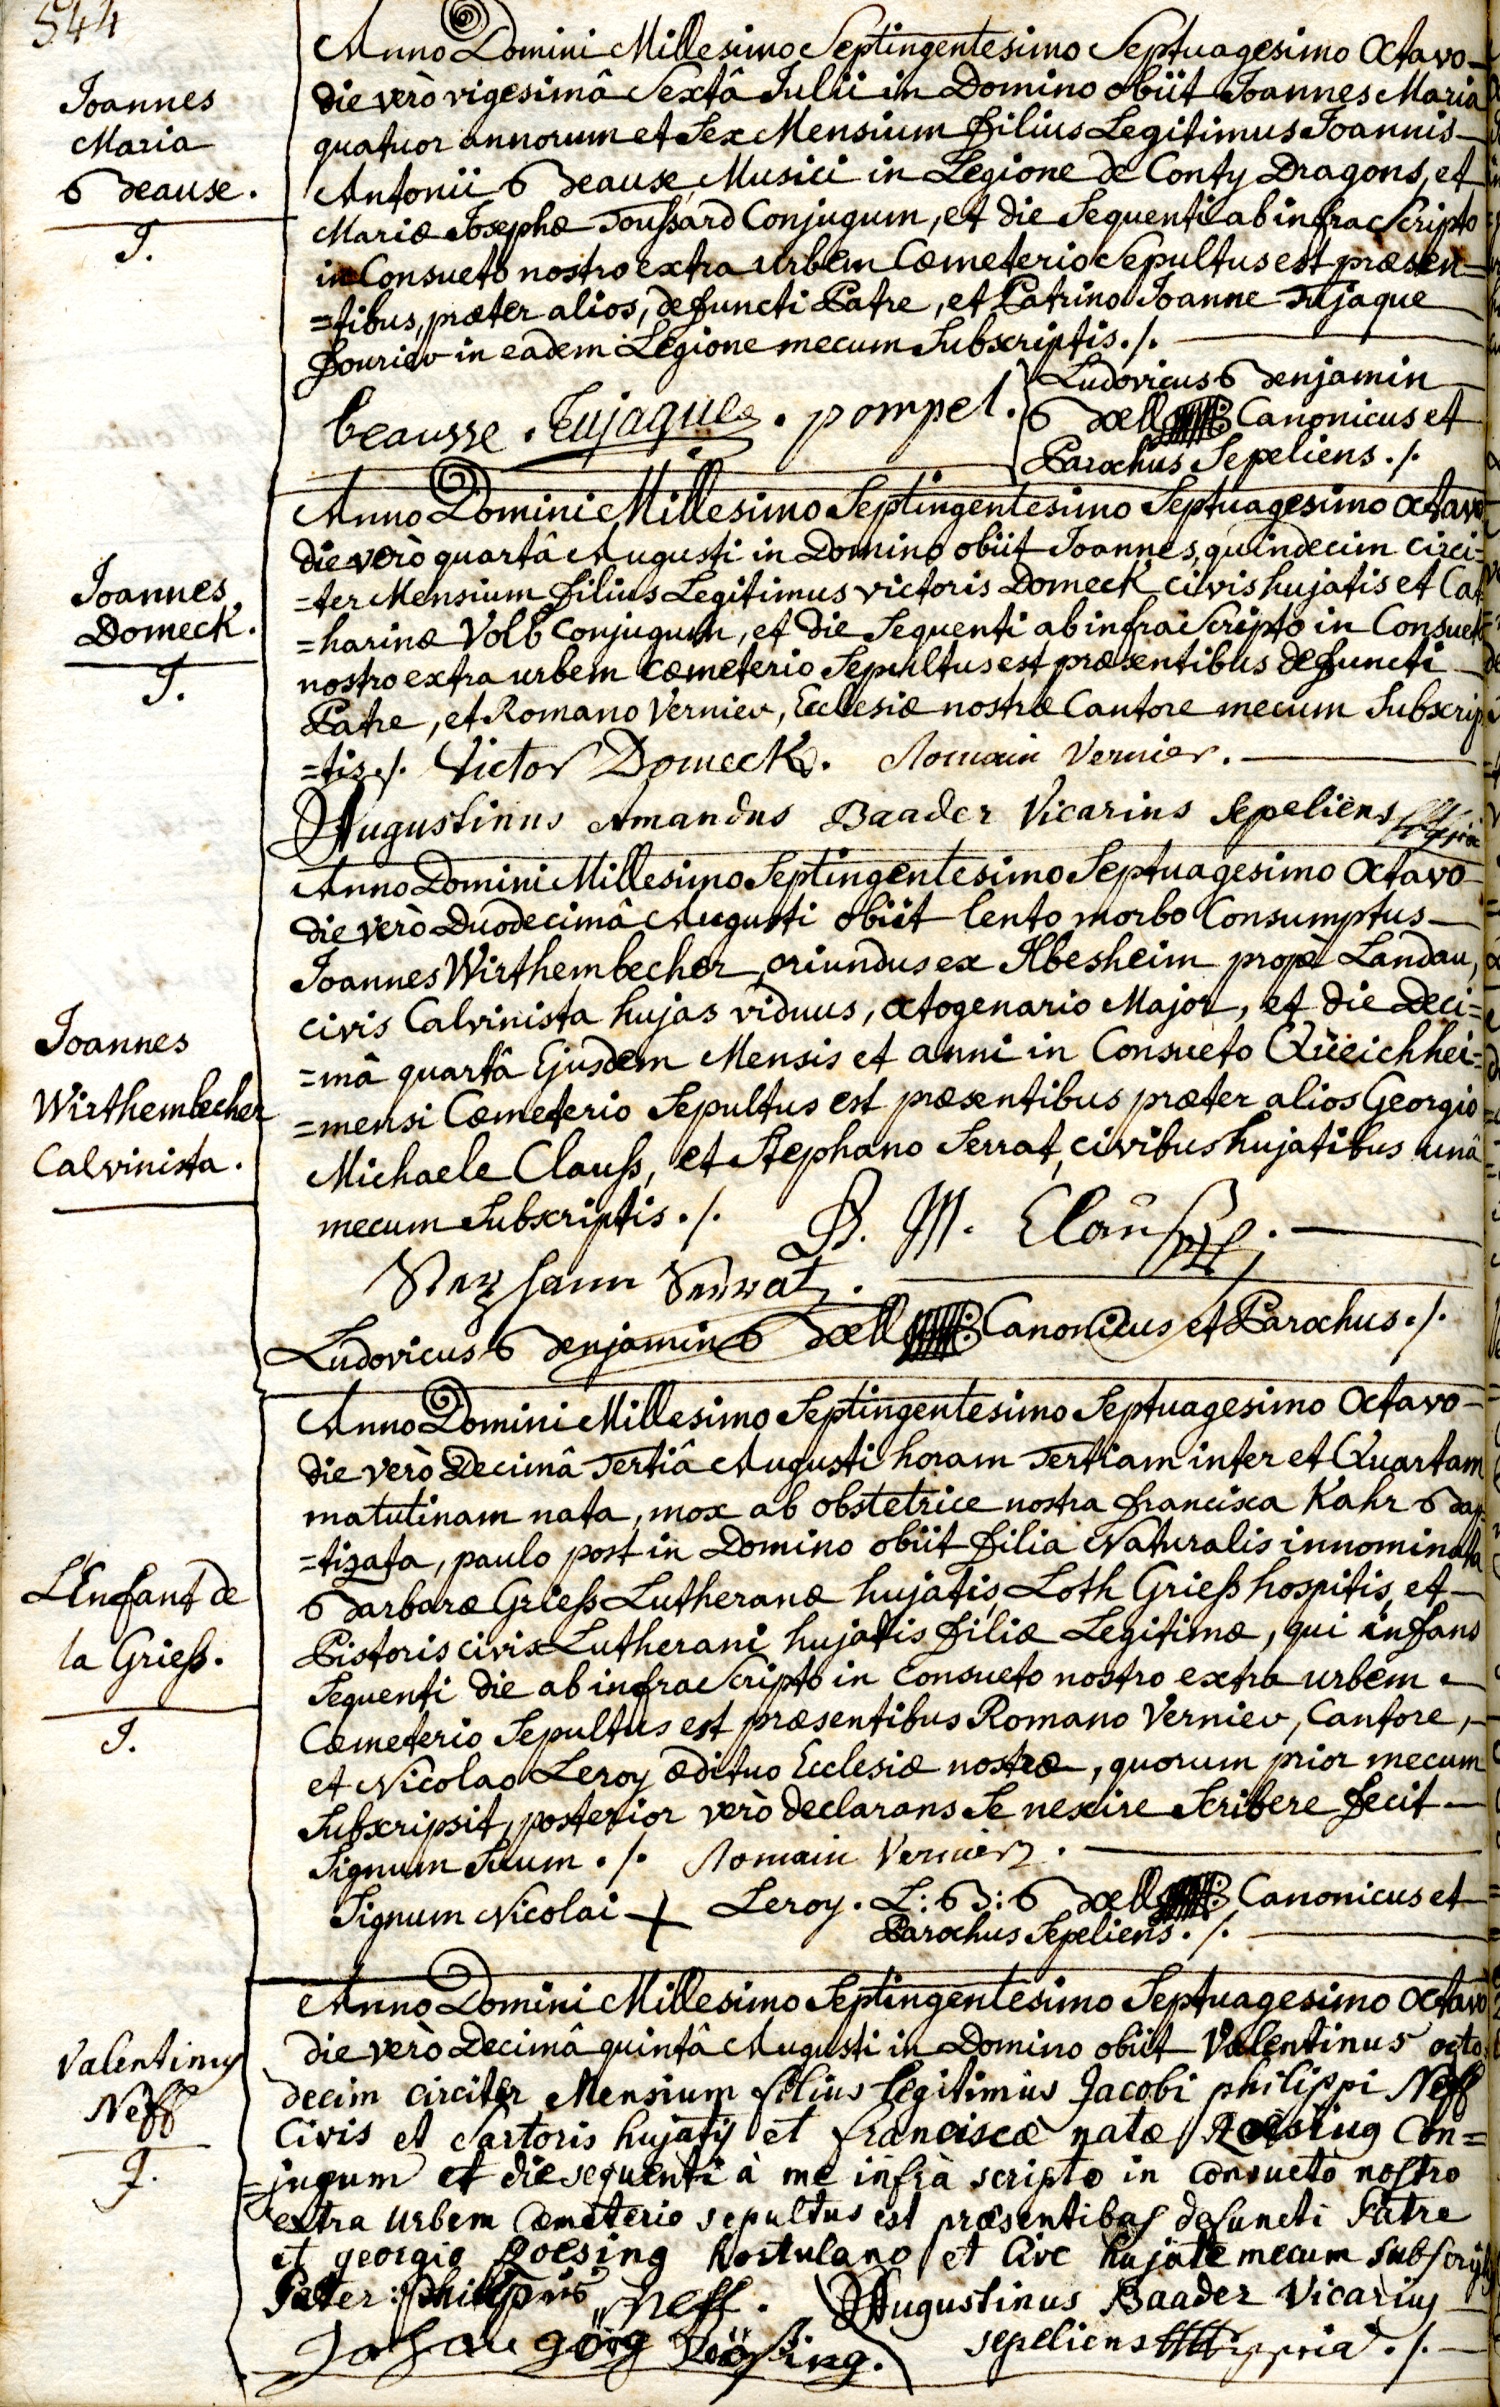 544
Joannes
Maria
Beause.
J.
Anno Domini Millesimo Septingentesimo Septuagesimo Octavo
die verò vigesimâ Sextâ Julii in Domino obiit Joannes Maria
quatuor annorum et Sex Mensium filius Legitimus Joannis
Antonii Beause Musici in Legione de Conty Dragons, et
Mariæ Josephæ Toussard Conjugum, et die Sequenti ab infra Scripto
in Consueto nostro extra urbem Cœmeterio Sepultus est præsen=
=tibus, præter alios, defuncti Patre, et Patrino Joanne Tujaque
fourier in eadem Legione mecum Subscriptis ./.
beausse . Tujaques . pompel .
Ludovicus Benjamin
Boell Canonicus et
Parochus Sepeliens ./.
Joannes
Domeck.
J.
Anno Domini Millesimo Septingentesimo Septuagesimo Octavo
die verò quartâ Augusti in Domino obiit Joannes, quindecim circi=
=ter Mensium filius Legitimus victoris Domeck civis hujatis et Cat
=harinæ Volb conjugum, et die Sequenti ab infra Scripto in Consueto
nostro extra urbem cœmeterio Sepultus est præsentibus defuncti
Patre, et Romano Vernier, Ecclesiæ nostræ Cantore mecum Subscrip
=tis ./. Victor Domeck. Romain Vernier.
Augustinus Amandus Baader Vicarius Sepeliens
Joannes
Wirthembecher
Calvinista.
Anno Domini Millesimo Septingentesimo Septuagesimo Octavo
die verò Duodecimâ Augusti obiit lento morbo Consumptus
Joannes Wirthembecher, oriundus ex Ilbesheim propè Landau,
civis Calvinista hujas viduus, octogenario Major, et die Deci=
=mâ quartâ Ejusdem Mensis et anni in Consueto Queichhei=
=mensi Cœmeterio Sepultus est præsentibus præter alios Georgio
Michaele Clauß, et Stephano Serrat, civibus hujatibus unà
mecum Subscriptis ./. G. M. Clauß.
Stephann Serrat.
Ludovicus Benjamin Boell Canonicus et Parochus ./.
L'Enfant de
la Grieß.
J.
Anno Domini Millesimo Septingentesimo Septuagesimo Octavo
die verò Decimâ Tertiâ Augusti horam Tertiam inter et Quartam
matutinam nata, mox ab obstetrice nostra francisca Kahr Bap
=tizata, paulo post in Domino obiit filia Naturalis innominata
Barbaræ Grieß Lutheranæ hujatis, Loth Grieß hospitis, et
Pistoris civis Lutherani hujatis filiæ Legitimæ, qui infans
Sequenti die ab infra Scripto in Consueto nostro extra urbem
Cœmeterio Sepultus est præsentibus Romano Vernier, Cantore,
et Nicolao Leroy ædituo Ecclesiæ nostræ, quorum prior mecum
Subscripsit, posterior verò declarans Se nescire Scribere fecit
Signum Suum ./. Romain Vernier.
Signum Nicolai + Leroy. L: B: Boell Canonicus et
Parochus Sepeliens ./.
Valentinus
Neff
J.
Anno Domini Millesimo Septingentesimo Septuagesimo Octavo
die verò Decimâ quintâ Augusti in Domino obiit Valentinus octo
decim circiter Mensium filius legitimus Jacobi philippi Neff
Civis et Sartoris hujatis et franciscæ natæ Roesing Con=
=jugum et die sequenti à me infrà scripto in consueto nostro
extra Urbem Cœmeterio sepultus est præsentibus defuncti Patre
et georgio Roesing hortulano et Cive hujate mecum subscriptis
Pater: philippus Neff. Augustinus Baader Vicarius
Johan görg Rösing. sepeliens ./.